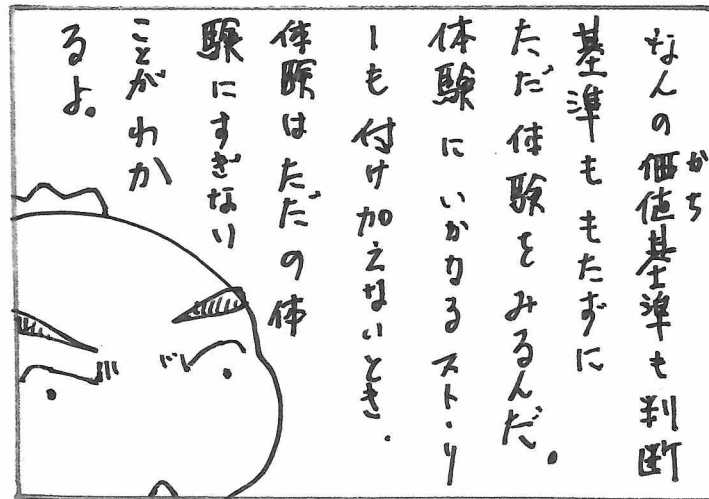 なんの価値基準も判断
かち
基準ももたずに
ただ体験をみるんだ。
体験にいかなるストーリ
ーも付け加えないとき、
体験はただの体
験にすぎない
ことがわか
るよ。